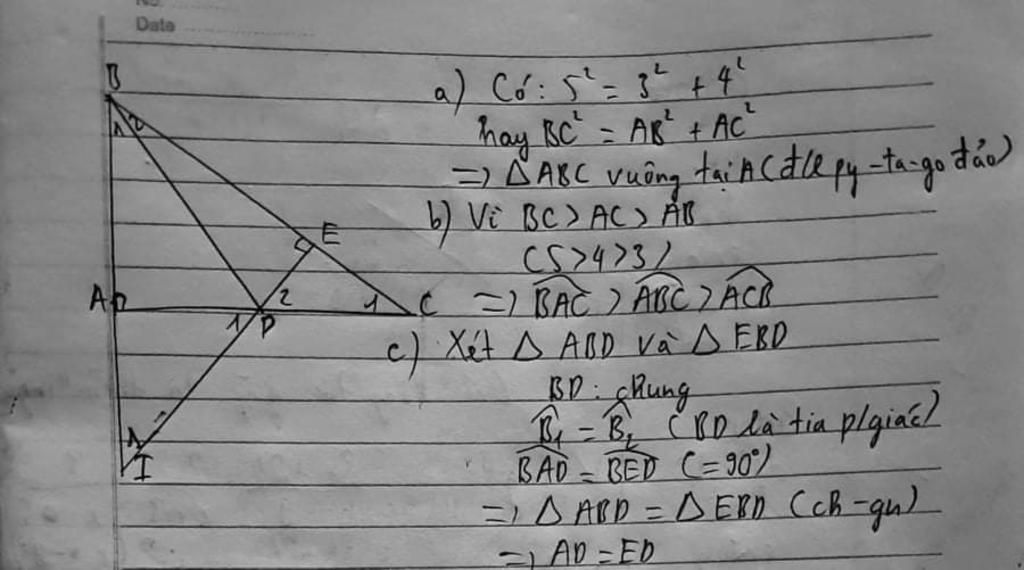 No.
Date
B
1 2
E
A
2
1
C
1
D
1
I
a) Có: 5² = 3² + 4²
hay BC² = AB² + AC²
=> △ ABC vuông tại A (đ/l py-ta-go đảo)
b) Vì BC > AC > AB
(5 > 4 > 3)
=> \widehat{BAC} > \widehat{ABC} > \widehat{ACB}
c) Xét △ ABD và △ EBD
BD : chung
\widehat{B₁} = \widehat{B₂} (BD là tia p/giác)
\widehat{BAD} = \widehat{BED} (= 90°)
=> △ ABD = △ EBD (ch - gn)
=> AD = ED